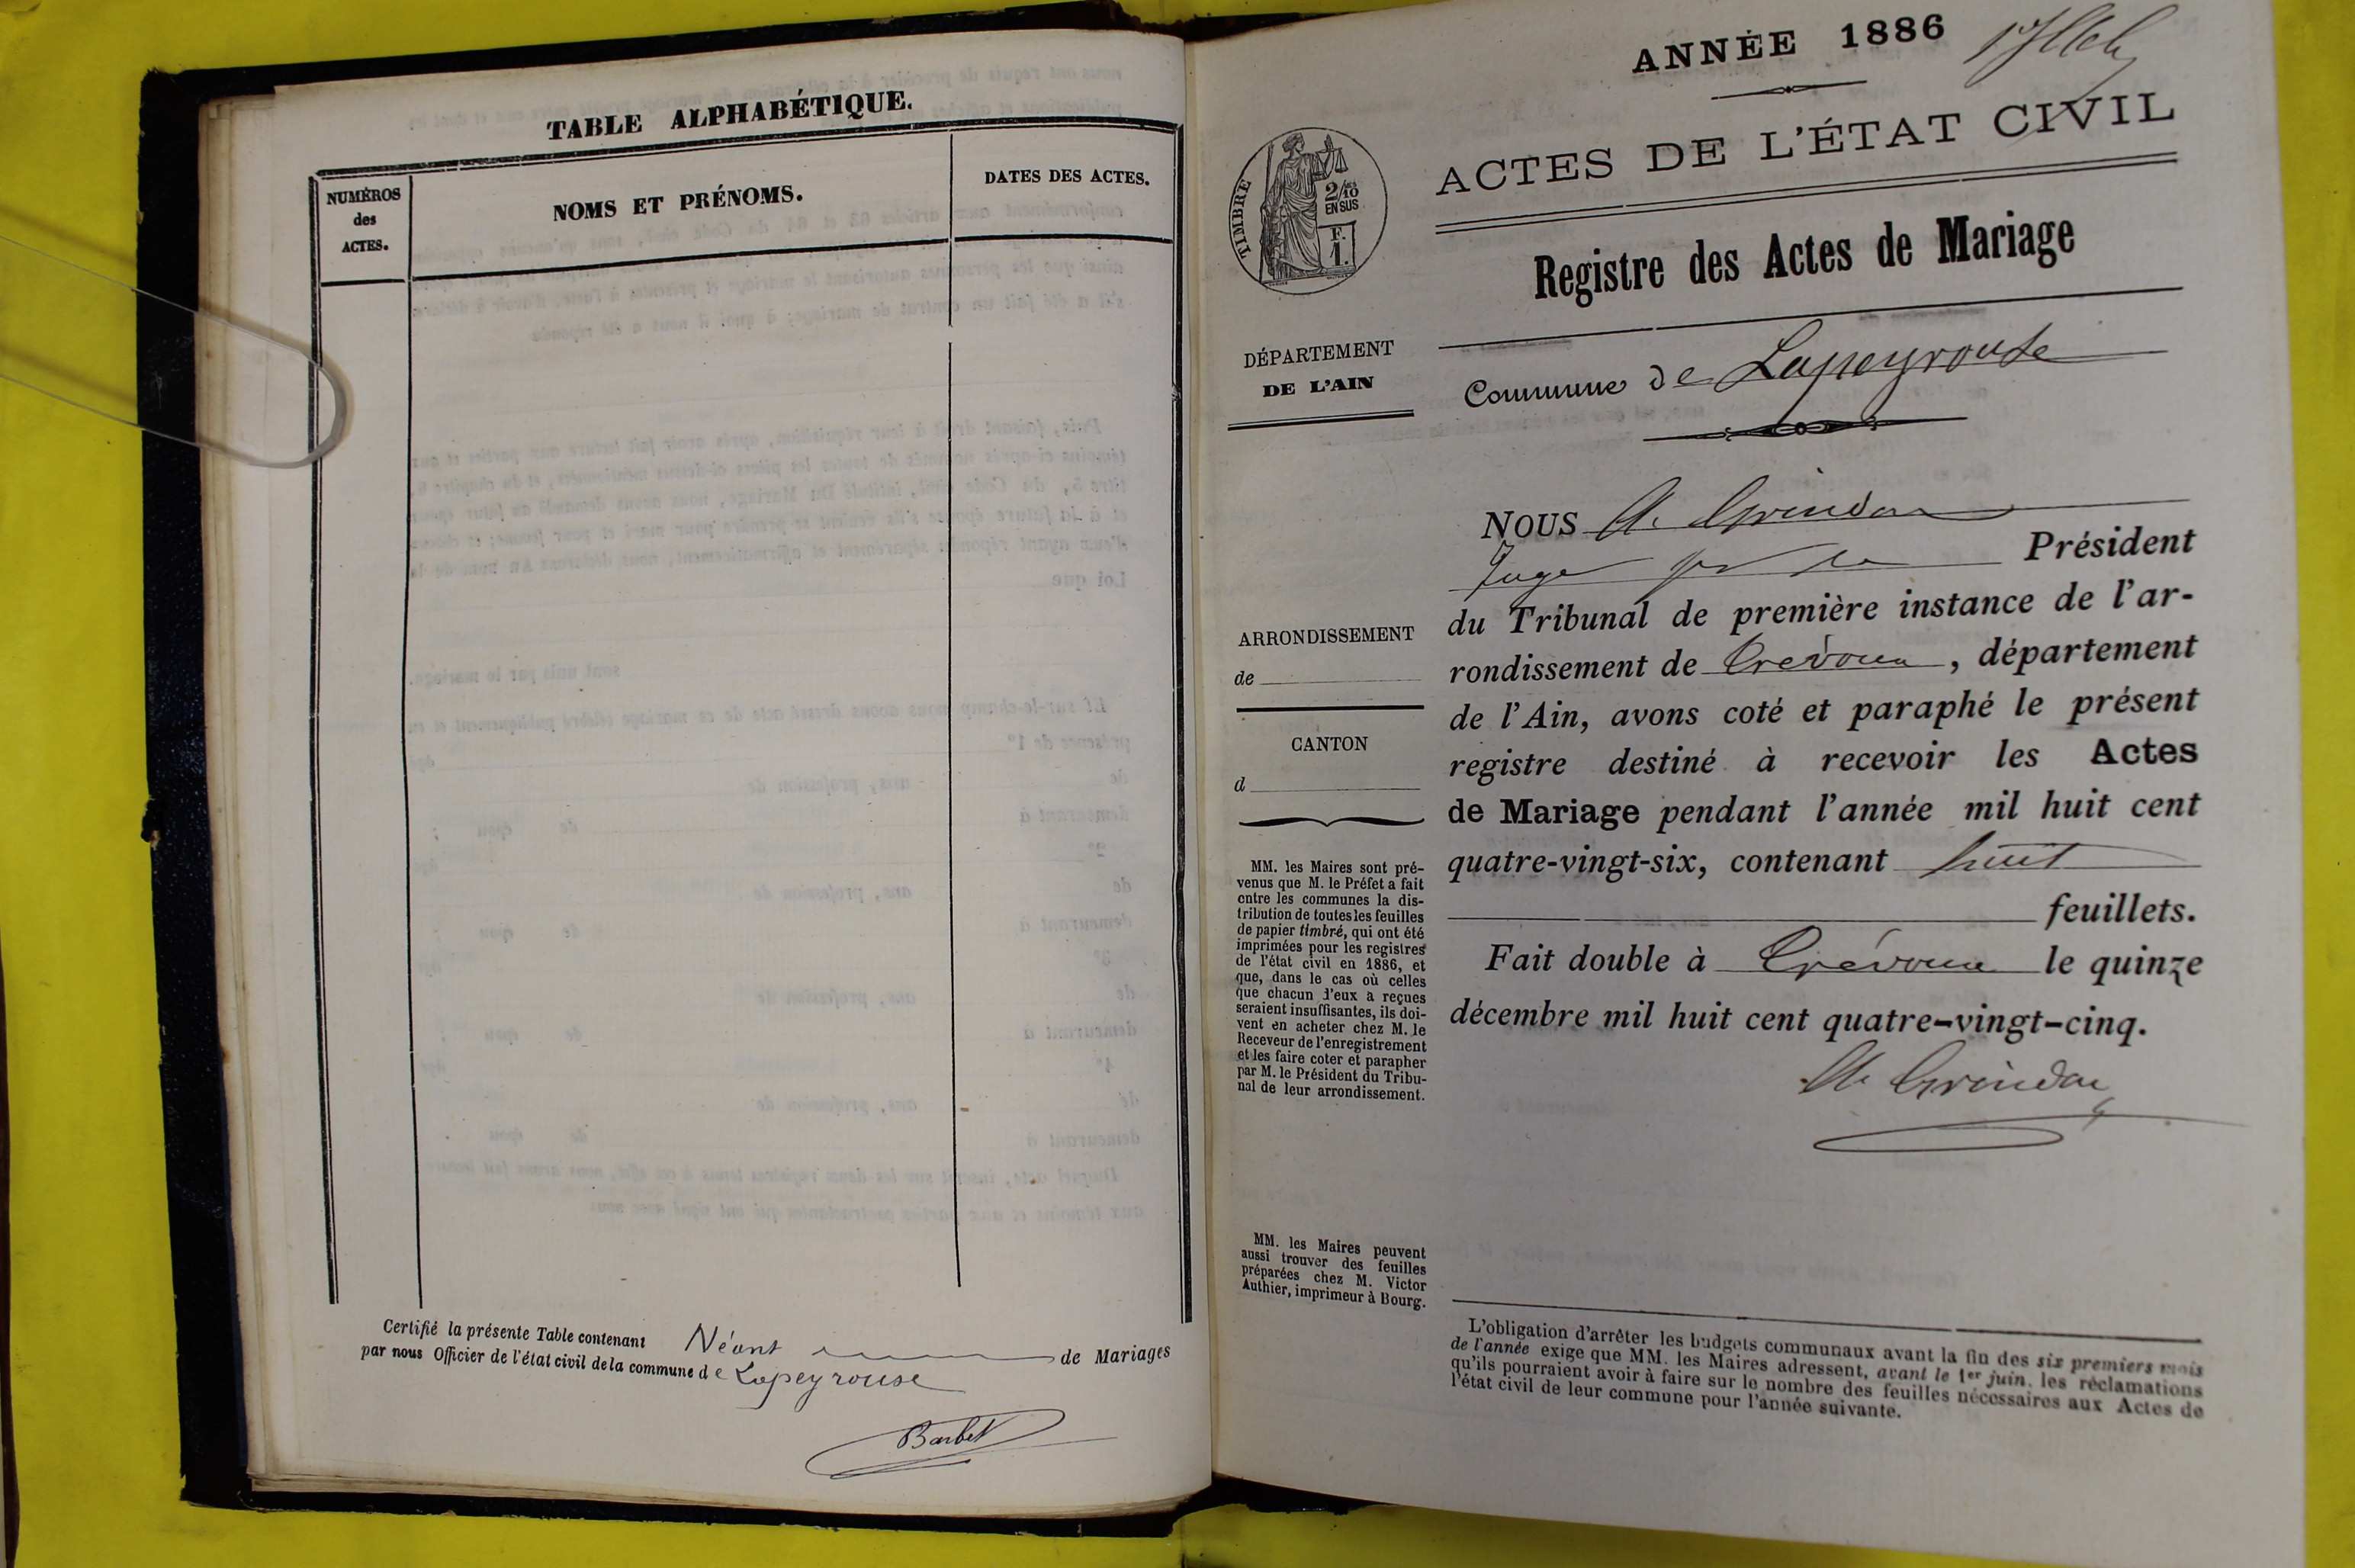 TABLE ALPHABÉTIQUE.
NUMÉROS
des
ACTES.
NOMS ET PRÉNOMS.
DATES DES ACTES.
Certifié la présente Table contenant Néant de Mariages
par nous Officier de l'état civil de la commune de Lapeyrouse
Barbet
ANNÉE 1886
ACTES DE L'ÉTAT CIVIL
TIMBRE
2/10
EN SUS
F.
1.
Registre des Actes de Mariage
DÉPARTEMENT
DE L'AIN
Commune de Lapeyrouse
NOUS A. Grindon
Juge Président
du Tribunal de première instance de l'ar-
rondissement de Trévoux, département
de l'Ain, avons coté et paraphé le présent
registre destiné à recevoir les Actes
de Mariage pendant l'année mil huit cent
quatre-vingt-six, contenant huit
feuillets.
Fait double à Trévoux le quinze
décembre mil huit cent quatre-vingt-cinq.
A. Grindon
ARRONDISSEMENT
de
CANTON
d
MM. les Maires sont pré-
venus que M. le Préfet a fait
entre les communes la dis-
tribution de toutes les feuilles
de papier timbré, qui ont été
imprimées pour les registres
de l'état civil en 1886, et
que, dans le cas où celles
que chacun d'eux a reçues
seraient insuffisantes, ils doi-
vent en acheter chez M. le
Receveur de l'enregistrement
et les faire coter et parapher
par M. le Président du Tribu-
nal de leur arrondissement.
MM. les Maires peuvent
aussi trouver des feuilles
préparées chez M. Victor
Authier, imprimeur à Bourg.
L'obligation d'arrêter les budgets communaux avant la fin des six premiers mois
de l'année exige que MM. les Maires adressent, avant le 1er juin, les réclamations
qu'ils pourraient avoir à faire sur le nombre des feuilles nécessaires aux Actes de
l'état civil de leur commune pour l'année suivante.